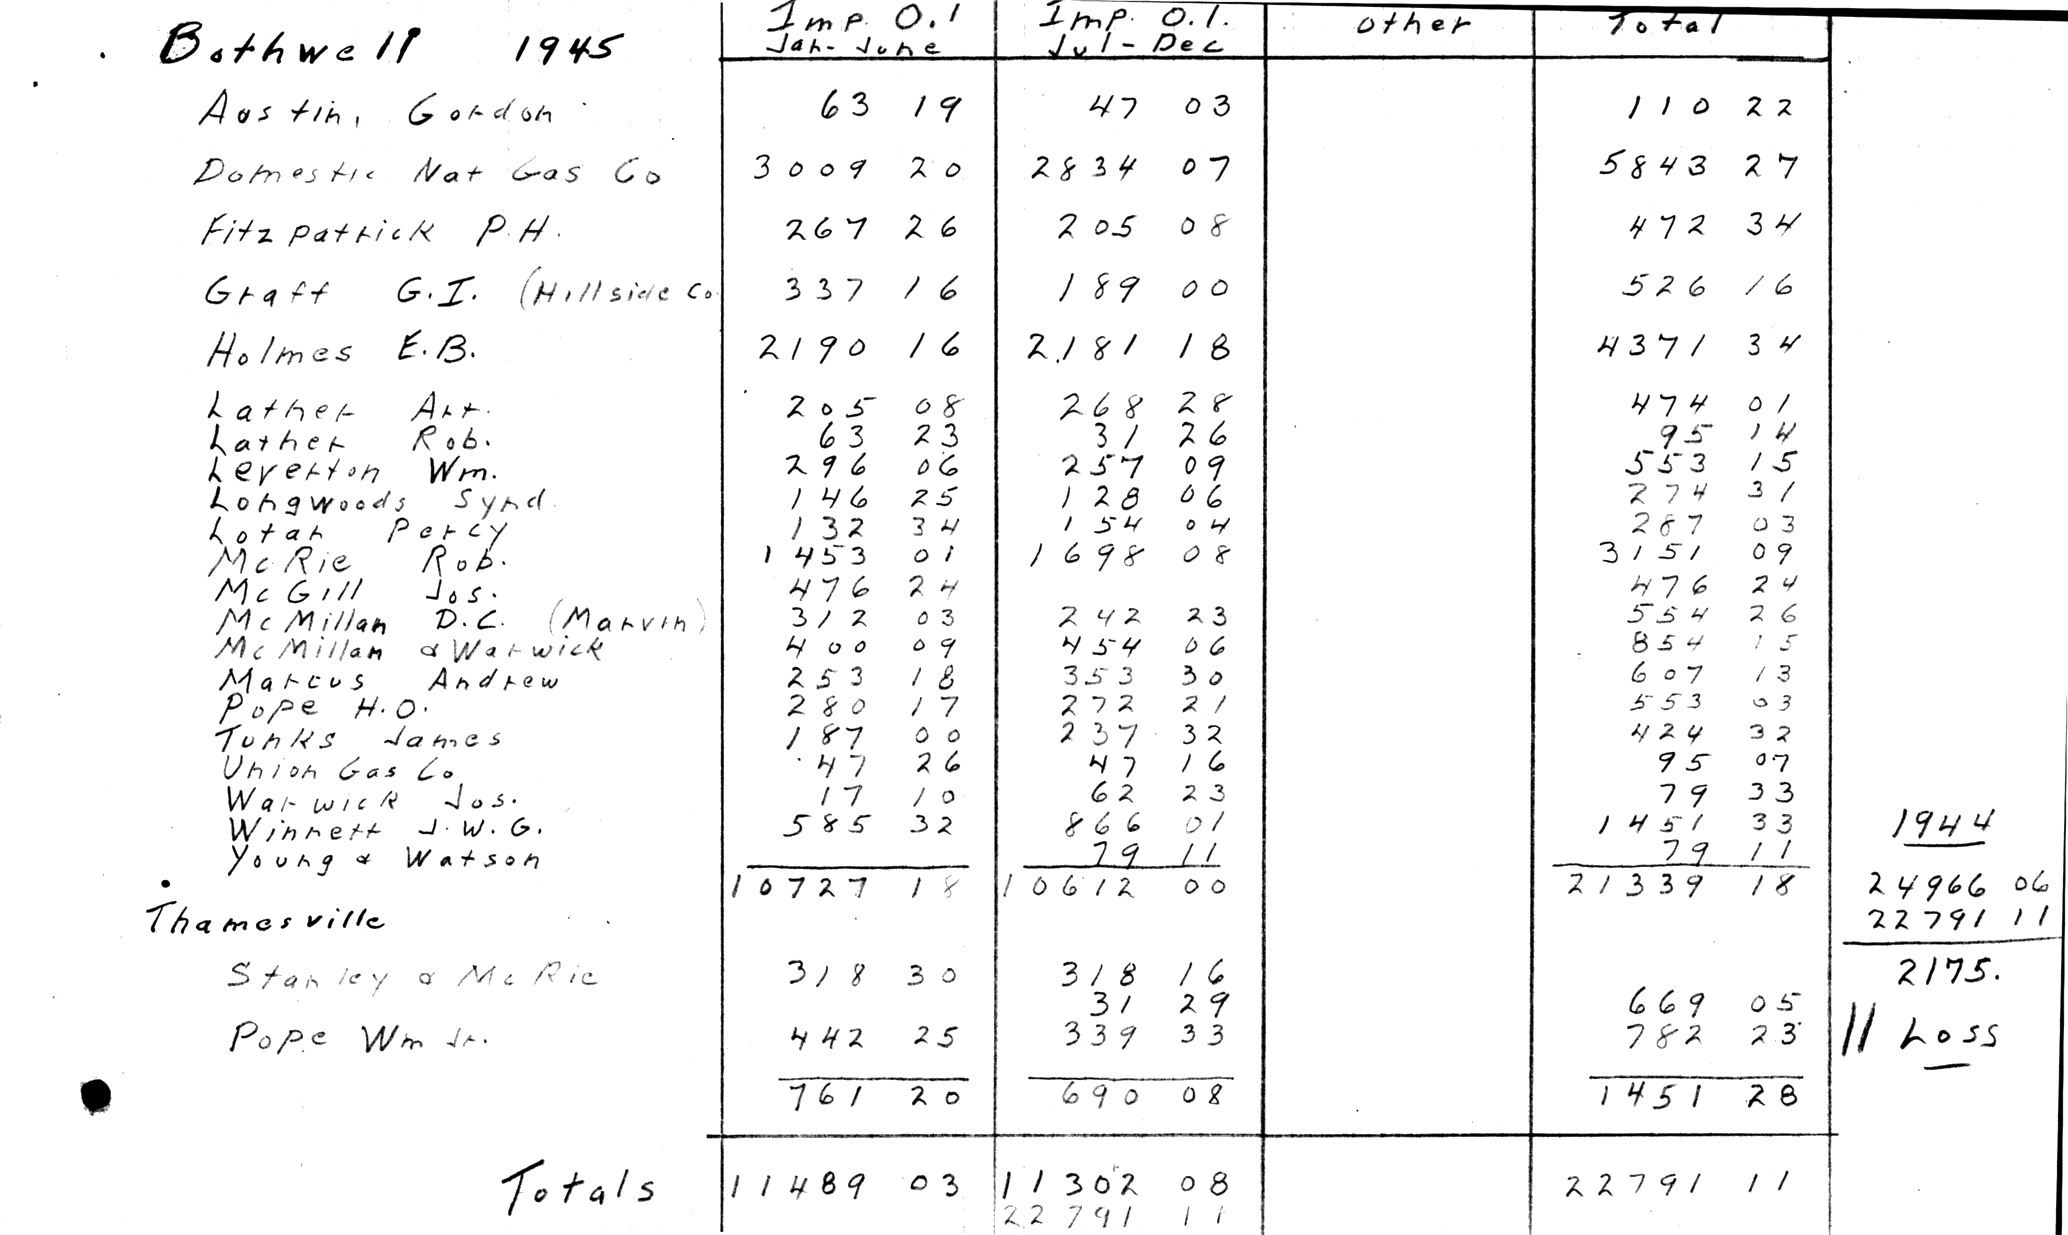 Imp. O.I Imp. O.I. Other Total
Bothwell 1945 Jan-June Jul-Dec
Austin, Gordon 63 19 47 03 110 22
Domestic Nat Gas Co 3009 20 2834 07 5843 27
Fitzpatrick P.H. 267 26 205 08 472 34
Graff G.I. (Hillside Co. 337 16 189 00 526 16
Holmes E.B. 2190 16 2181 18 4371 34
Lather Art. 205 08 268 28 474 01
Lather Rob. 63 23 31 26 95 14
Leverton Wm. 296 06 257 09 553 15
Longwoods Synd. 146 25 128 06 274 31
Lotan Percy 132 34 154 04 287 03
McRie Rob. 1453 01 1698 08 3151 09
McGill Jos. 476 24 476 24
McMillan D.C. (Marvin) 312 03 242 23 554 26
McMillan & Warwick 400 09 454 06 854 15
Marcus Andrew 253 18 353 30 607 13
Pope H.O. 280 17 272 21 553 03
Tunks James 187 00 237 32 424 32
Union Gas Co 47 26 47 16 95 07
Warwick Jos. 17 10 62 23 79 33
Winnett J.W.G. 585 32 866 01 1451 33 1944
Young & Watson 79 11 79 11
10727 18 10612 00 21339 18 24966 06
Thamesville 22791 11
Stanley & McRie 318 30 318 16 2175.
31 29 669 05
Pope Wm Jr. 442 25 339 33 782 23 || Loss
761 20 690 08 1451 28
Totals 11489 03 11302 08 22791 11
22791 11